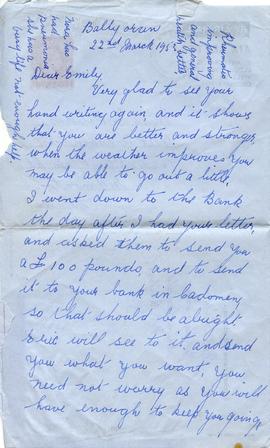 Ballyoran
22nd March 195
Rheumatic
improving
and general
health better
Nora has
had
pneumonia
she is a
long life not enough
Dear Emily,
Very glad to see your
hand writing again, and it shows
that you are better and stronger,
when the weather improves you
may be able to go out a little,
I went down to the Bank
the day after I had your letter,
and asked them to send you
a £100 pounds, and to send
it to your bank in
so that should be alright,
Eric will see to it. and send
you what you want, you
need not worry as you will
have enough to keep you going,